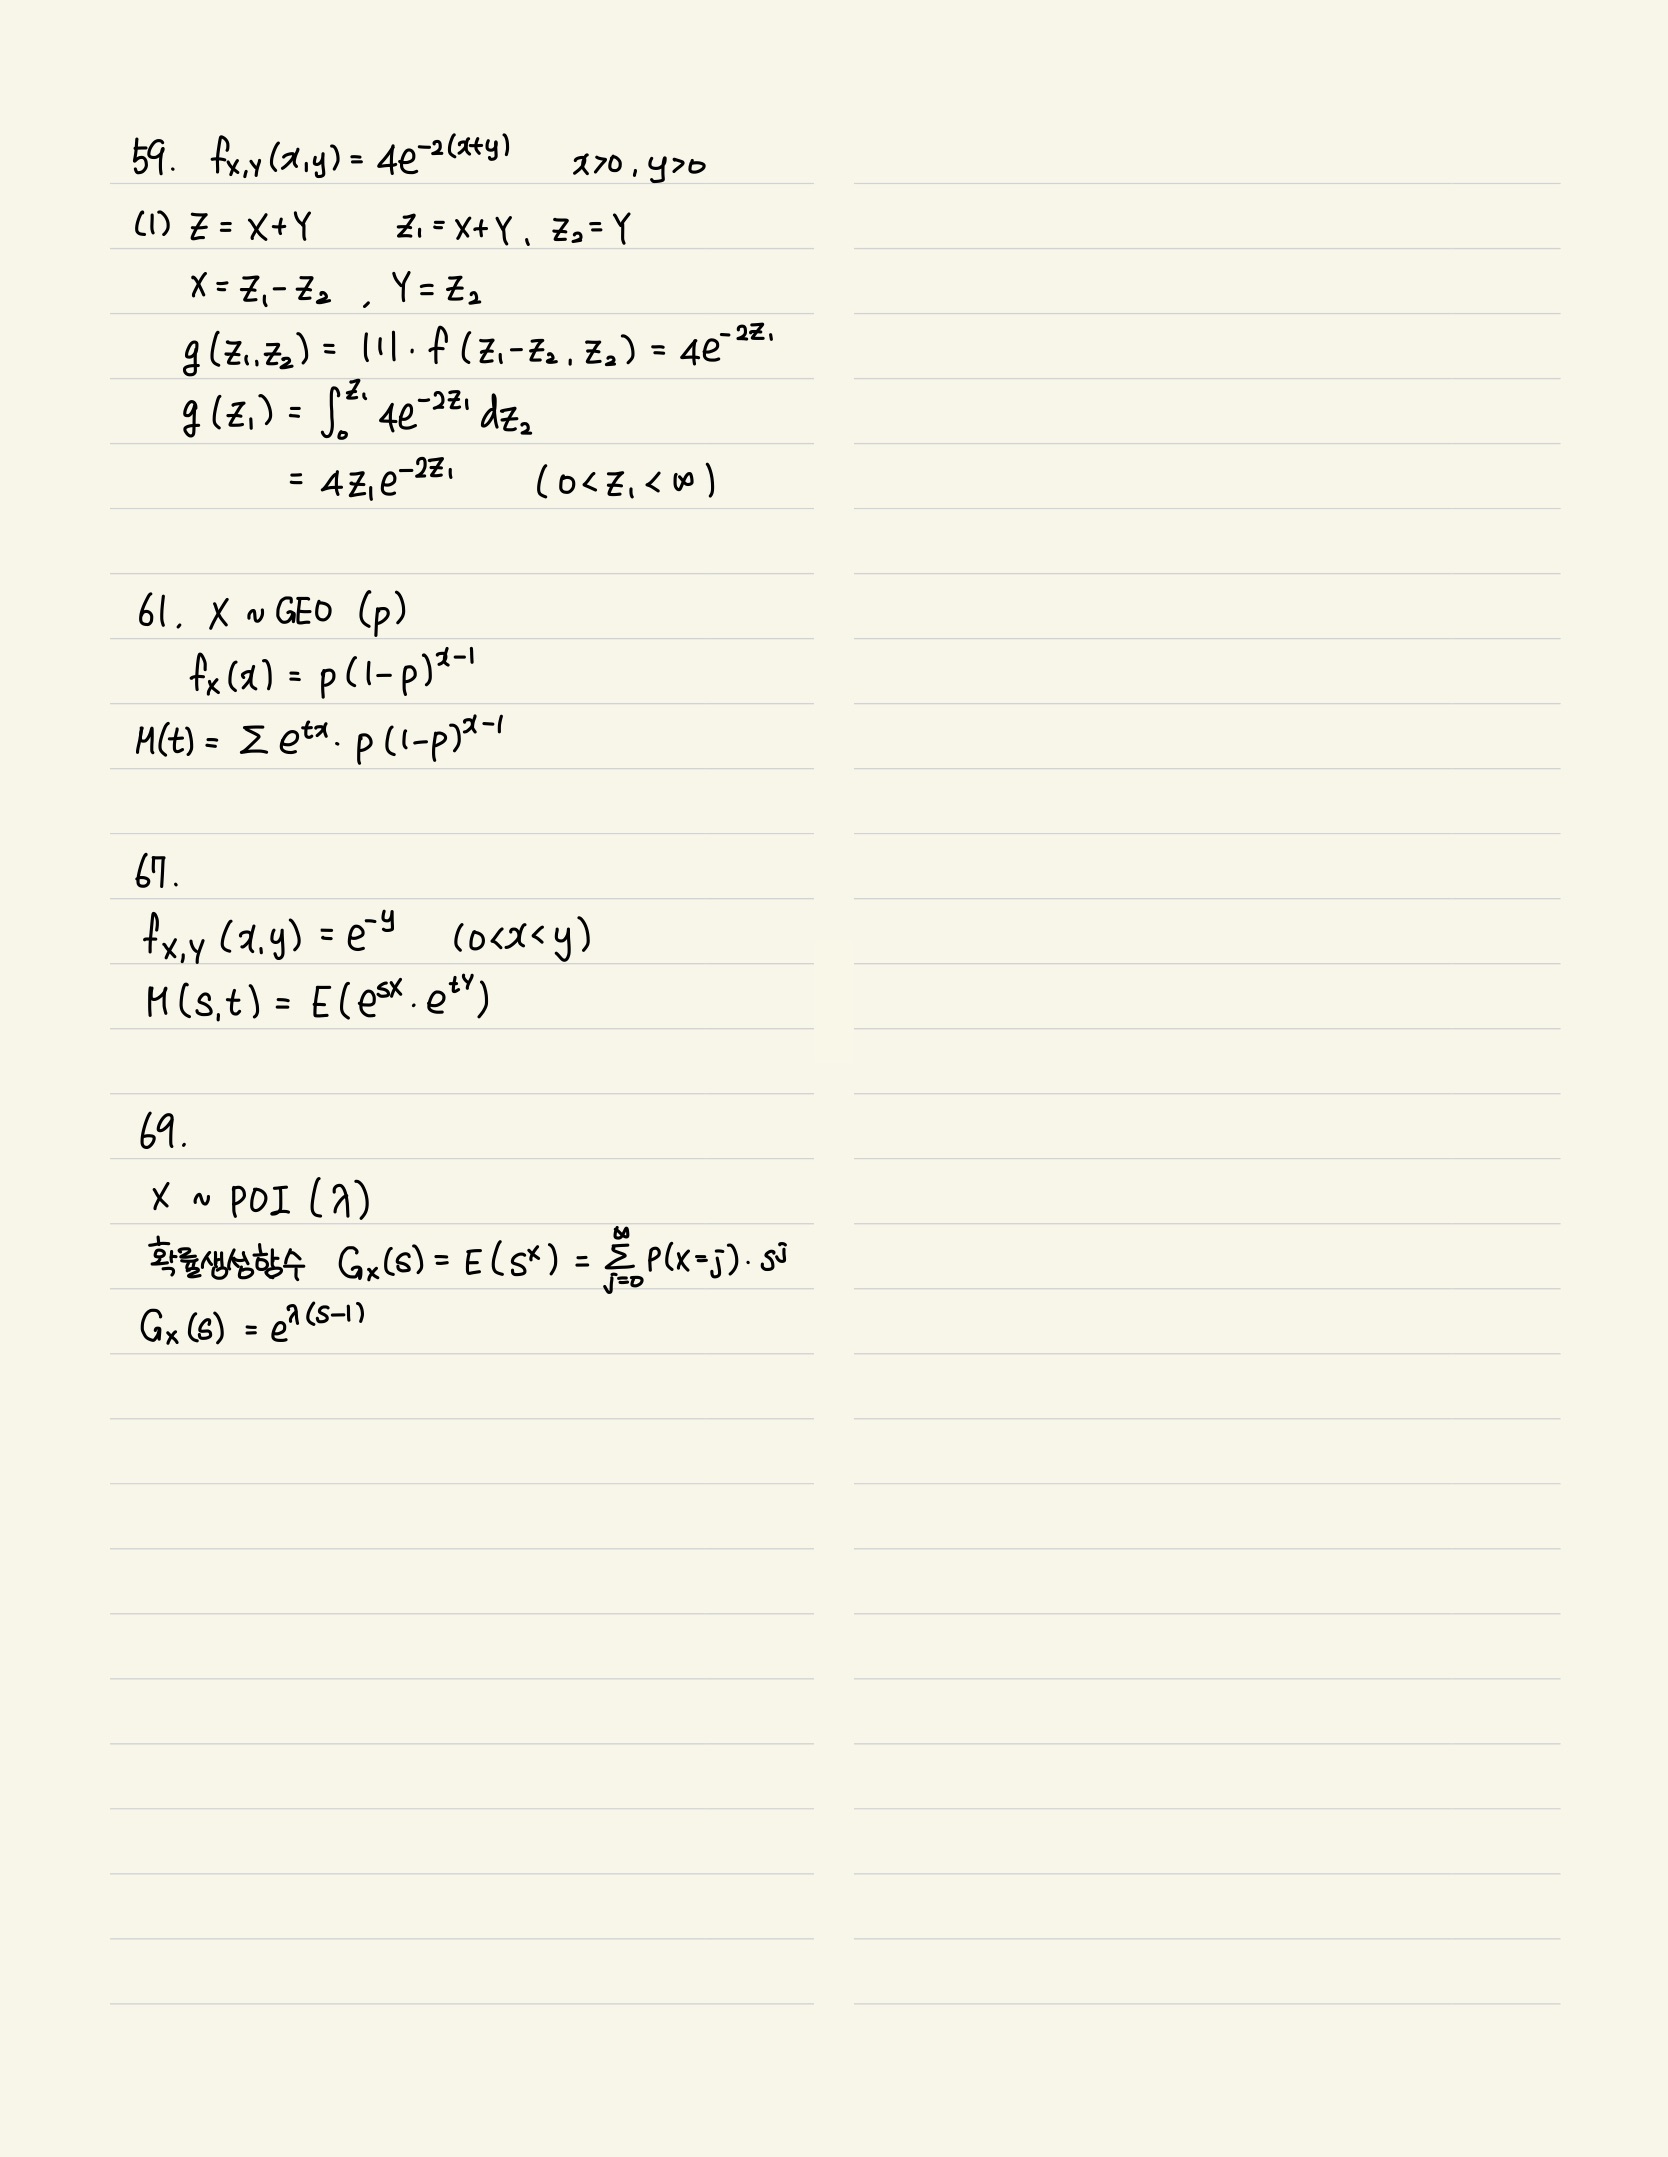 59. f_{X,Y}(x,y) = 4e^{-2(x+y)} x>0, y>0
(1) Z = X+Y Z₁ = X+Y, Z₂ = Y
X = Z₁-Z₂, Y = Z₂
g(Z₁,Z₂) = |1|·f(Z₁-Z₂, Z₂) = 4e^{-2Z₁}
g(Z₁) = ∫₀^{Z₁} 4e^{-2Z₁} dZ₂
= 4Z₁e^{-2Z₁} (0<Z₁<∞)
61. X ~ GEO (p)
f_X(x) = p(1-p)^{x-1}
M(t) = Σ e^{tx}·p(1-p)^{x-1}
67.
f_{X,Y}(x,y) = e^{-y} (0<x<y)
M(s,t) = E(e^{sX}·e^{tY})
69.
X ~ POI (λ)
확률생성함수 G_X(s) = E(s^X) = Σ_{j=0}^{∞} P(X=j)·s^j
G_X(s) = e^{λ(s-1)}